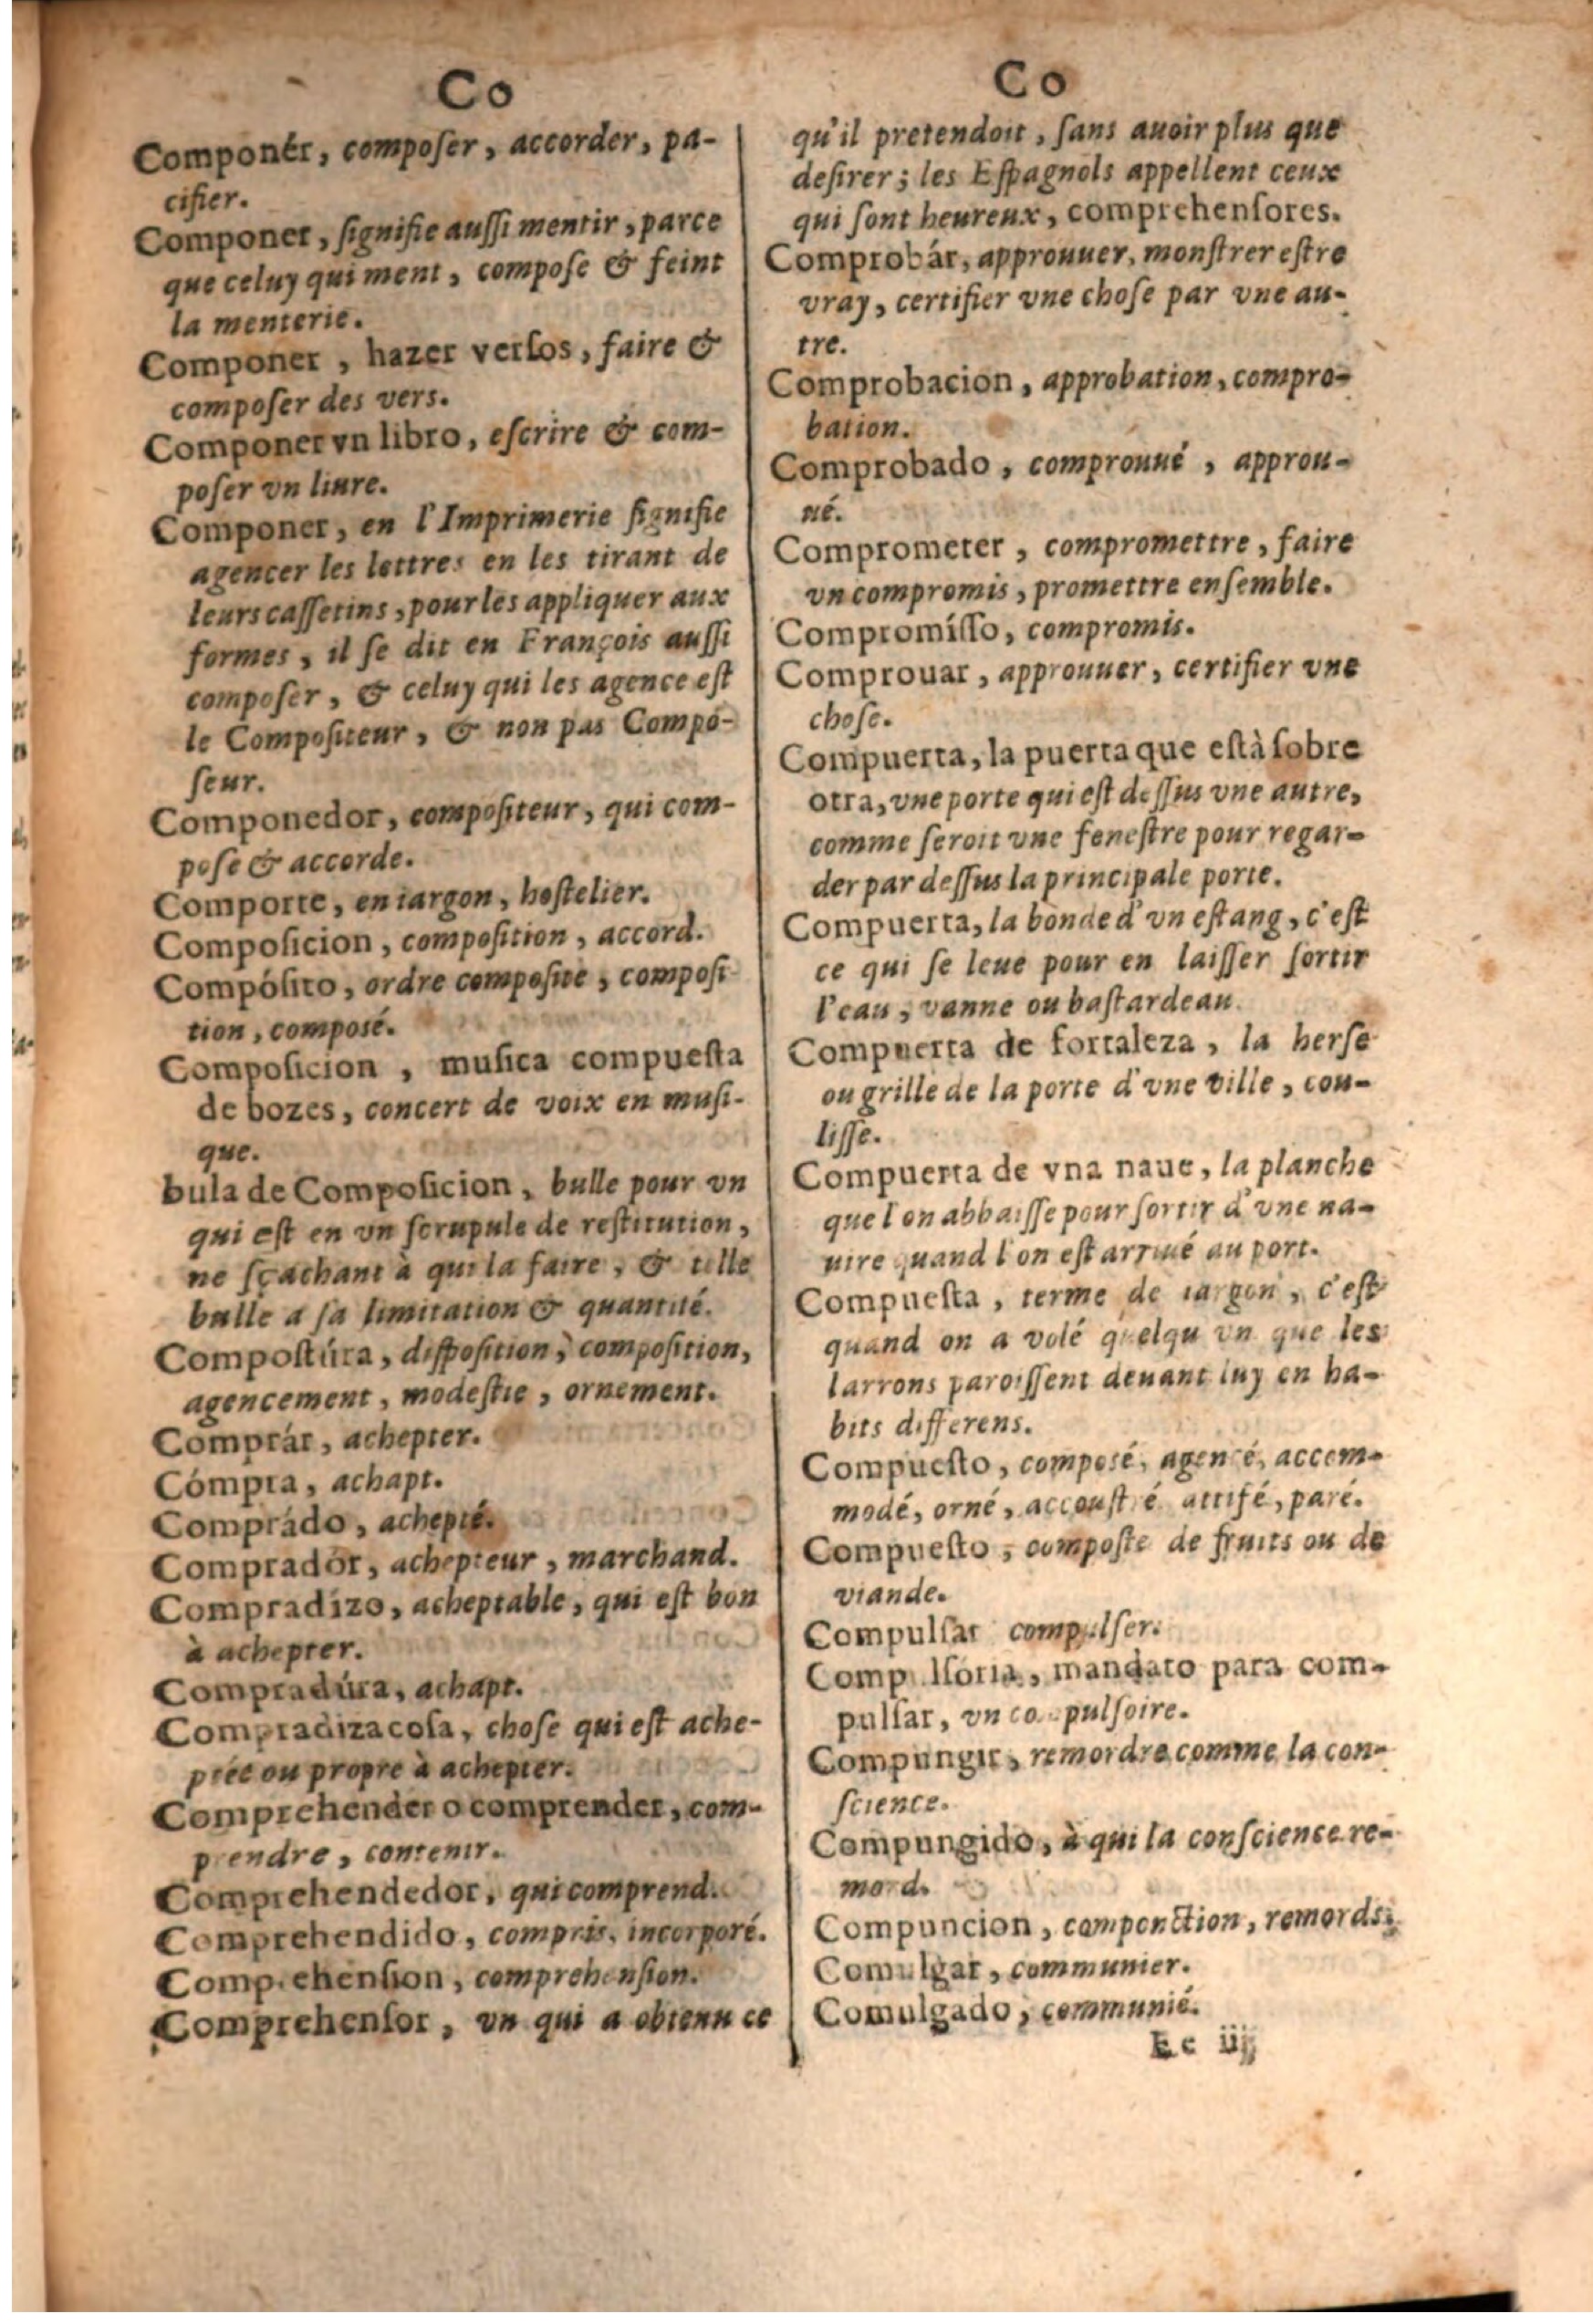 Co
Componér, composer, accorder, pa-
cifier.
Componer, signifie aussi mentir, parce
que celuy qui ment, compose & feint
la menterie.
Componer, hazer versos, faire &
composer des vers.
Componer vn libro, escrire & com-
poser vn liure.
Componer, en l'Imprimerie signifie
agencer les lettres en les tirant de
leurs cassetins, pour les appliquer aux
formes, il se dit en François aussi
composer, & celuy qui les agence est
le Compositeur, & non pas Compo-
seur.
Componedor, compositeur, qui com-
pose & accorde.
Comporte, en iargon, hostelier.
Composicion, composition, accord.
Compósito, ordre composite, composi-
tion, composé.
Composicion, musica compuesta
de bozes, concert de voix en musi-
que.
bula de Composicion, bulle pour vn
qui est en vn scrupule de restitution,
ne sçachant à qui la faire, & telle
bulle a sa limitation & quantité.
Compostúra, disposition, composition,
agencement, modestie, ornement.
Comprár, achepter.
Cómpra, achapt.
Comprádo, achepté.
Compradór, achepteur, marchand.
Compradízo, acheptable, qui est bon
à achepter.
Compradúra, achapt.
Compradiza cosa, chose qui est ache-
ptée ou propre à achepter.
Comprehender o comprender, com-
prendre, contenir.
Comprehendedor, qui comprend.
Comprehendido, compris, incorporé.
Comprehension, comprehension.
Comprehensor, vn qui a obtenu ce
Co
qu'il pretendoit, sans auoir plus que
desirer; les Espagnols appellent ceux
qui sont heureux, comprehensores.
Comprobár, approuuer, monstrer estre
vray, certifier vne chose par vne au-
tre.
Comprobacion, approbation, compro-
bation.
Comprobado, comprouué, approu-
ué.
Comprometer, compromettre, faire
vn compromis, promettre ensemble.
Compromísso, compromis.
Comprouar, approuuer, certifier vne
chose.
Compuerta, la puerta que està sobre
otra, vne porte qui est dessus vne autre,
comme seroit vne fenestre pour regar-
der par dessus la principale porte.
Compuerta, la bonde d'vn estang, c'est
ce qui se leue pour en laisser sortir
l'eau, vanne ou bastardeau.
Compuerta de fortaleza, la herse
ou grille de la porte d'vne ville, cou-
lisse.
Compuerta de vna naue, la planche
que l'on abbaisse pour sortir d'vne na-
uire quand l'on est arriué au port.
Compuesta, terme de iargon, c'est
quand on a volé quelqu'vn que les
larrons paroissent deuant luy en ha-
bits differens.
Compuesto, composé, agencé, accom-
modé, orné, accoustré, attifé, paré.
Compuesto, composte de fruits ou de
viande.
Compulsar compulser.
Compulsória, mandato para com-
pulsar, vn compulsoire.
Compungir, remordre comme la con-
science.
Compungido, à qui la conscience re-
mord.
Compuncion, componction, remords.
Comulgar, communier.
Comulgado, communié.
Ee iij